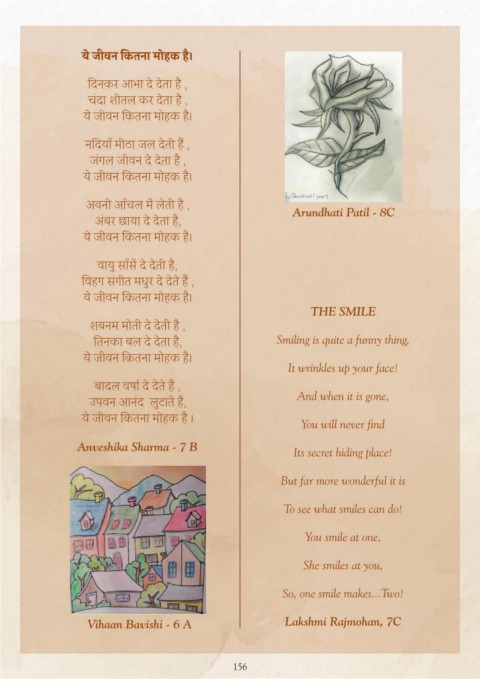 ये जीवन कितना मोहक है।
दिनकर आभा दे देता है ,
चंदा शीतल कर देता है ,
ये जीवन कितना मोहक है।
नदियाँ मीठा जल देती हैं ,
जंगल जीवन दे देता है ,
ये जीवन कितना मोहक है।
अवनी आँचल में लेती है ,
अंबर छाया दे देता है,
ये जीवन कितना मोहक है।
वायु साँसें दे देती है,
विहग संगीत मधुर दे देते हैं ,
ये जीवन कितना मोहक है।
शबनम मोती दे देती है ,
तिनका बल दे देता है,
ये जीवन कितना मोहक है।
बादल वर्षा दे देते हैं ,
उपवन आनंद लुटाते हैं,
ये जीवन कितना मोहक है ।
Anveshika Sharma - 7 B
Vihaan Bavishi - 6 A
Arundhati Patil - 8C
THE SMILE
Smiling is quite a funny thing,
It wrinkles up your face!
And when it is gone,
You will never find
Its secret hiding place!
But far more wonderful it is
To see what smiles can do!
You smile at one,
She smiles at you,
So, one smile makes...Two!
Lakshmi Rajmohan, 7C
156